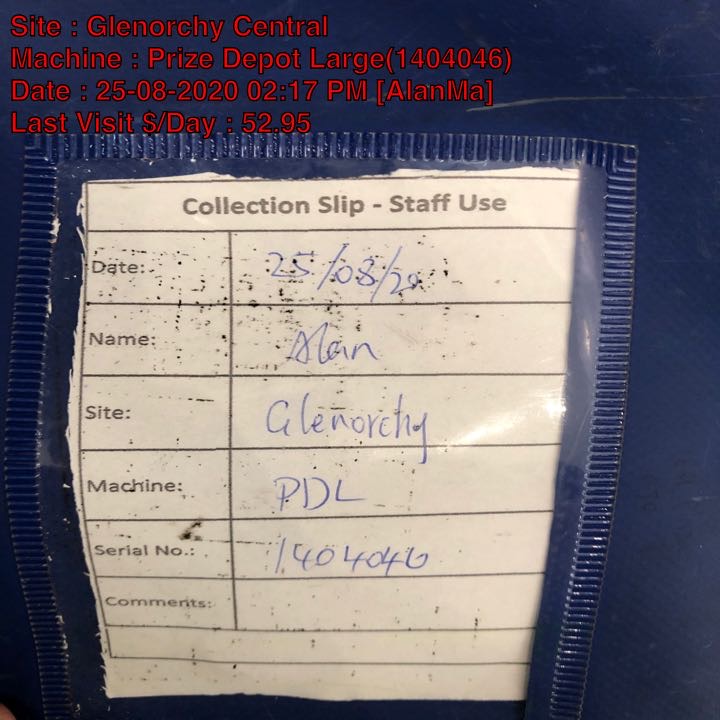 Site : Glenorchy Central
Machine : Prize Depot Large(1404046)
Date : 25-08-2020 02:17 PM [AlanMa]
Last Visit $/Day : 52.95
Collection Slip - Staff Use
Date: 25/08/20
Name: Alan
Site: Glenorchy
Machine: PDL
Serial No.: 1404046
Comments: